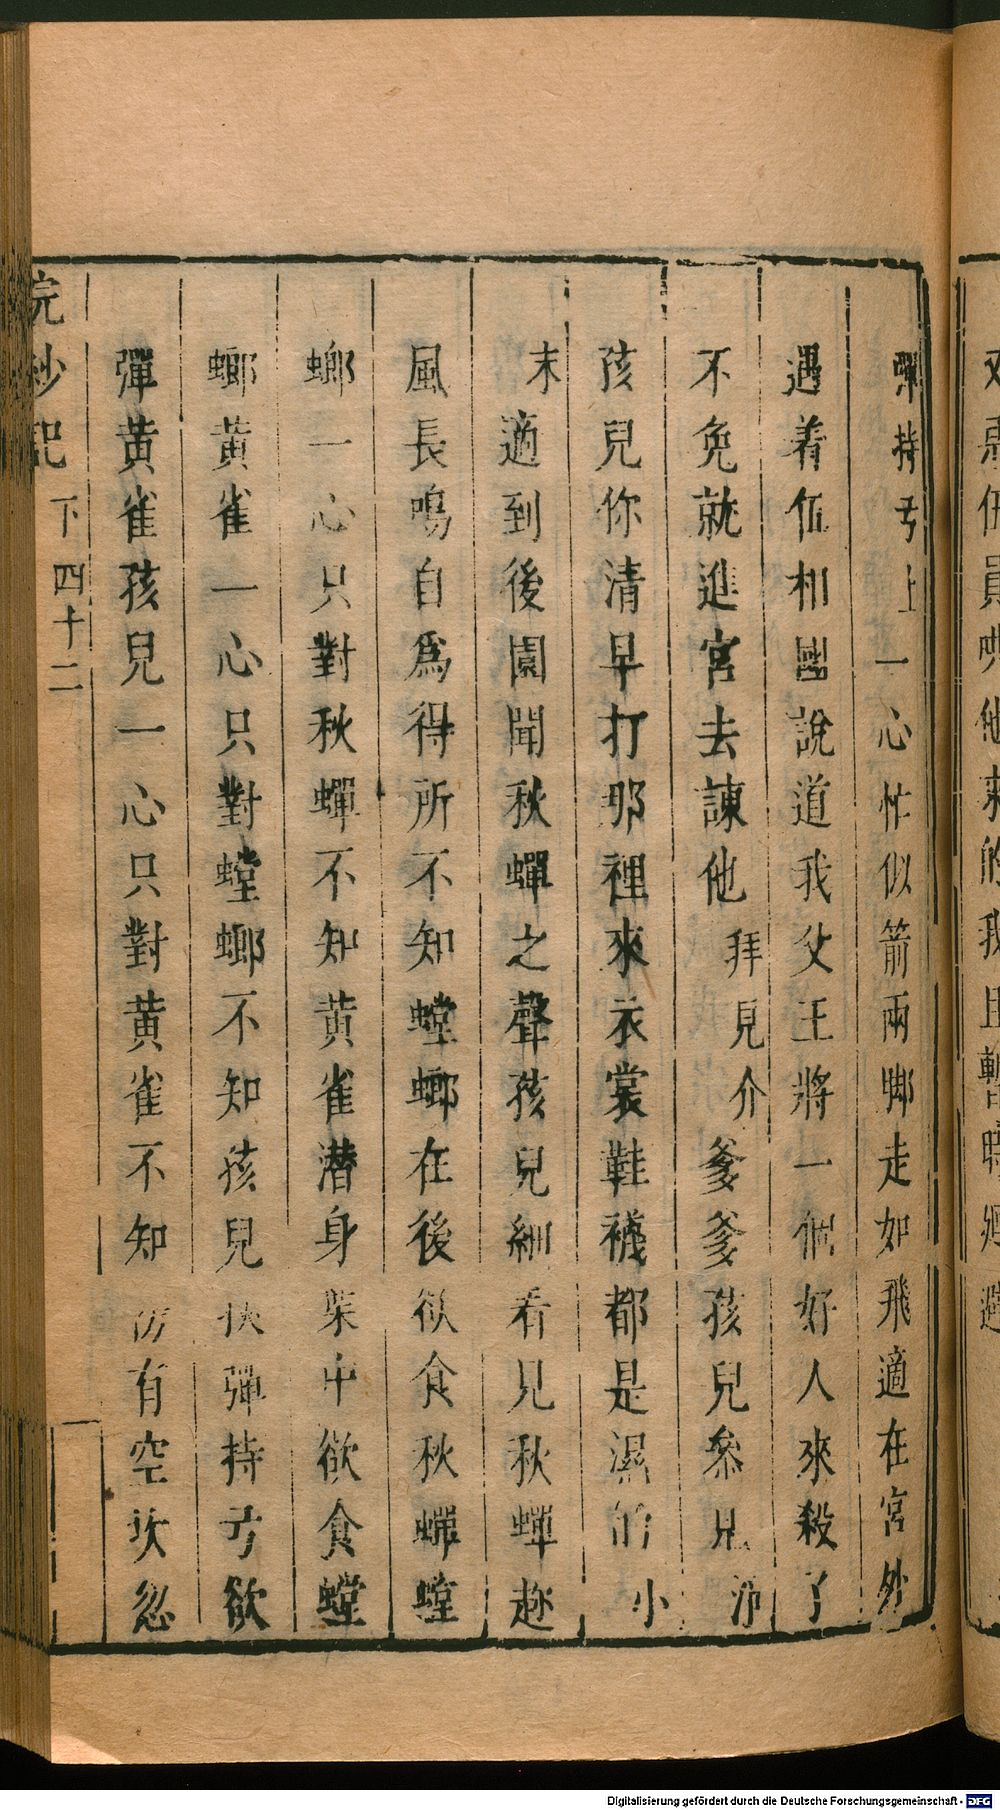 彈持弓上一心忙似箭兩脚走如飛適在宮外
遇着伍相國說道我父王將一個好人來殺了
不免就進宮去諫他拜見介爹爹孩兒叅見淨
孩兒你清早打那裡來衣裳鞋襪都是濕的小
末適到後園聞秋蟬之聲孩兒細看見秋蟬趂
風長鳴自爲得所不知螳螂在後欲食秋蟬螳
螂一心只對秋蟬不知黃雀潛身葉中欲食螳
螂黃雀一心只對螳螂不知孩兒挾彈持弓欲
彈黃雀孩兒一心只對黃雀不知傍有空坎忽
浣紗記 下 四十二
Digitalisierung gefördert durch die Deutsche Forschungsgemeinschaft - DFG